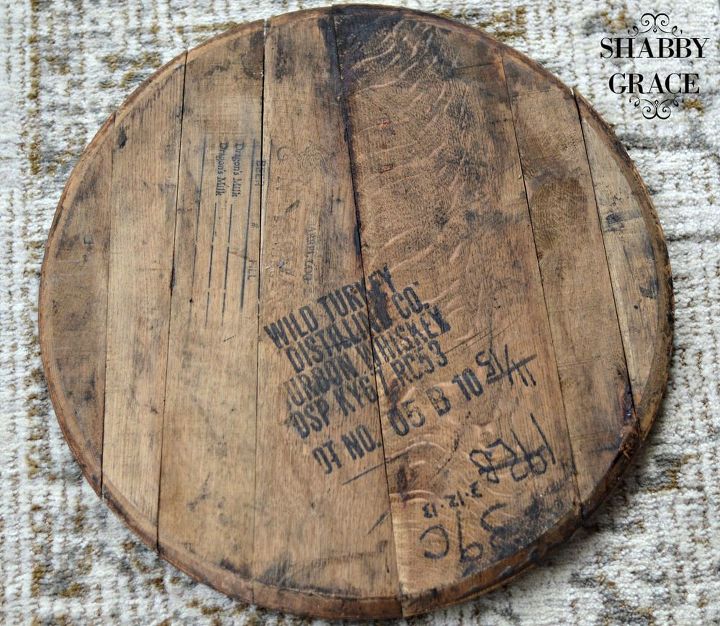 SHABBY
GRACE
BEER
Dragon's Milk
Dragon's Milk
FILL
WILD TURKEY
DISTILLING CO.
URBON WHISKEY
DSP KY67 RC53
OT NO. 05 B 10
2-12-13
39C